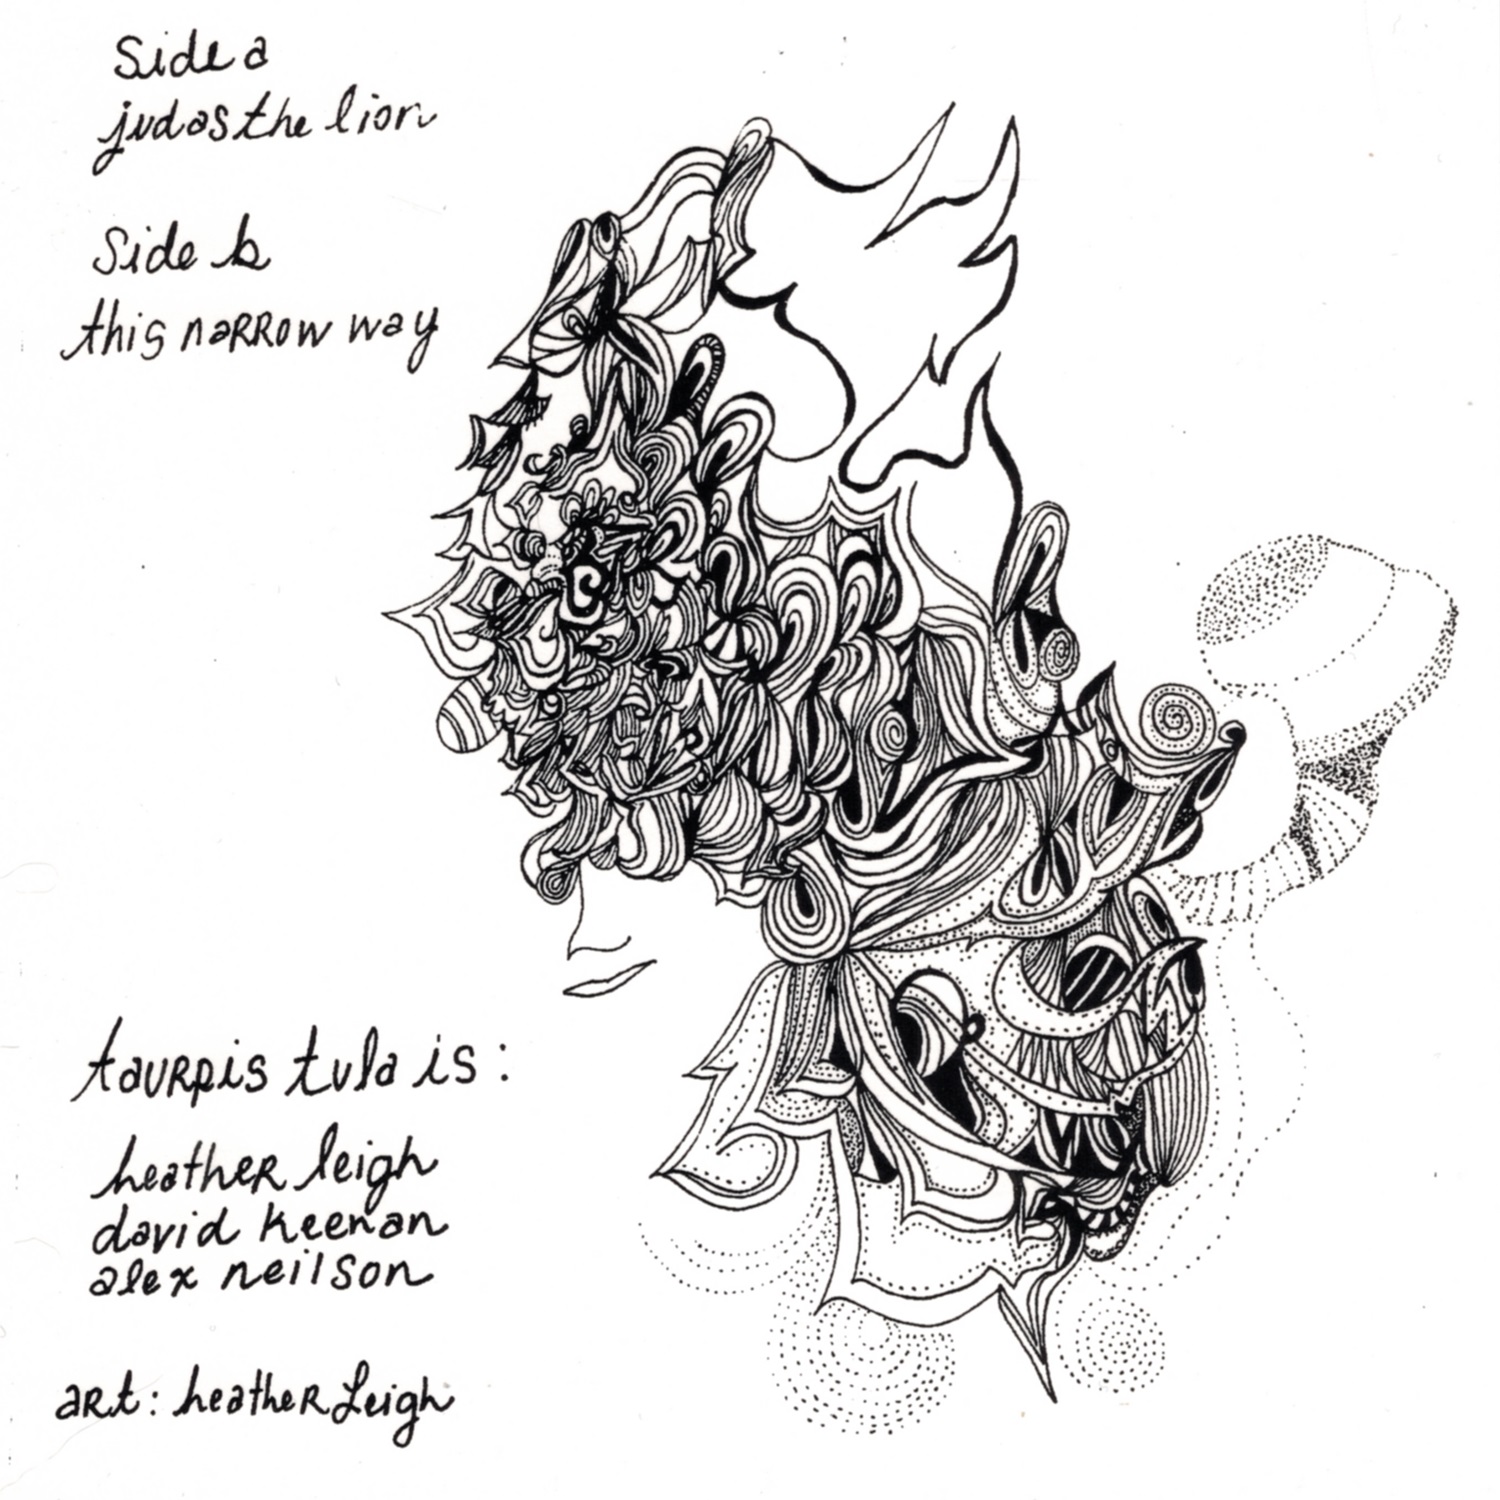 side a
judas the lion
side b
this narrow way
taurpis tula is:
heather leigh
david keenan
alex neilson
art: heather leigh